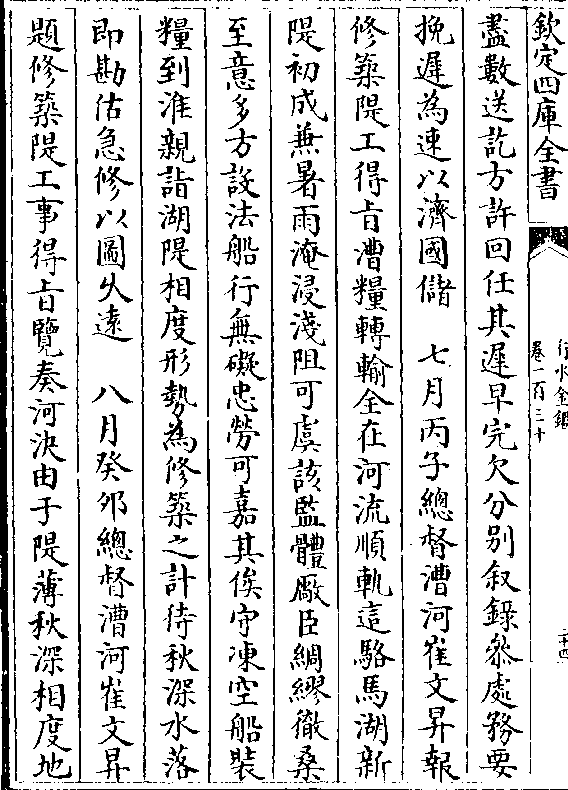 欽定四庫全書
行水金鑑
卷一百三十
二十四
盡數送訖方許回任其遲早完欠分别叙錄叅處務要
挽遲為速以濟國儲　七月丙子總督漕河崔文昇報
修築隄工得㫖漕糧轉輸全在河流順軌這駱馬湖新
隄初成兼暑雨淹浸淺阻可虞該監體廠臣綢繆徹桑
至意多方設法船行無礙忠勞可嘉其俟守凍空船裝
糧到淮親詣湖隄相度形勢為修築之計待秋深水落
即勘估急修以圖乆遠　八月癸夘總督漕河崔文昇
題修築隄工事得㫖覽奏河決由于隄薄秋深相度地